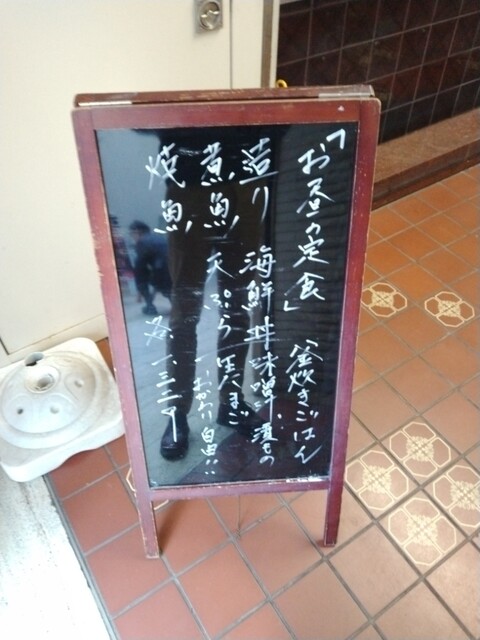 「お昼の定食」
造り 海鮮丼
煮魚 天ぷら
焼魚 各一、三二〇
釜炊きごはん
味噌汁、漬もの
生たまご
おかわり自由!!